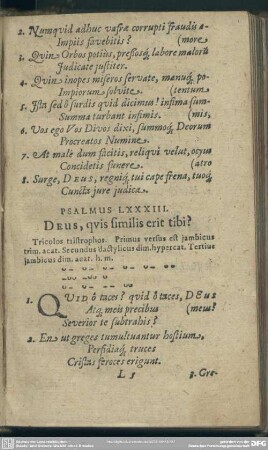 2. Numqvid adhuc vafræ corrupti fraudis a-
Impiis favebitis? (more
3. Qvin Orbos potius, pressosq; labore malorũ
Judicate justiter.
4. Qvin inopes miseros servate, manuq; po-
Impiorum solvite. (tentum
5. Ista sed ô surdis quid dicimus! infima sum-
Summa turbant infimis. (mis,
6. Vos ego Vos Divos dixi, summoq; Deorum
Procreatos Numine.
7. At malè dum facitis, reliqvi velut, ocyus
Concidetis funere. (atro
8. Surge, DEUS, regniq; tui cape frena, tuoq;
Cuncta jure judica.
PSALMUS LXXXIII.
DEUS, qvis similis erit tibi?
Tricolos tristrophos. Primus versus est jambicus
trim. acat. Secundus dactylicus dim. hypercat. Tertius
jambicus dim. acat. h. m.
1. QUID ô taces? quid ô taces, DEUS
Atq; meis precibus (meus?
Severior te subtrahis?
2. En ut greges tumultuantur hostium,
Perfidiaq; truces
Cristas feroces erigunt.
L 5
3. Gre-